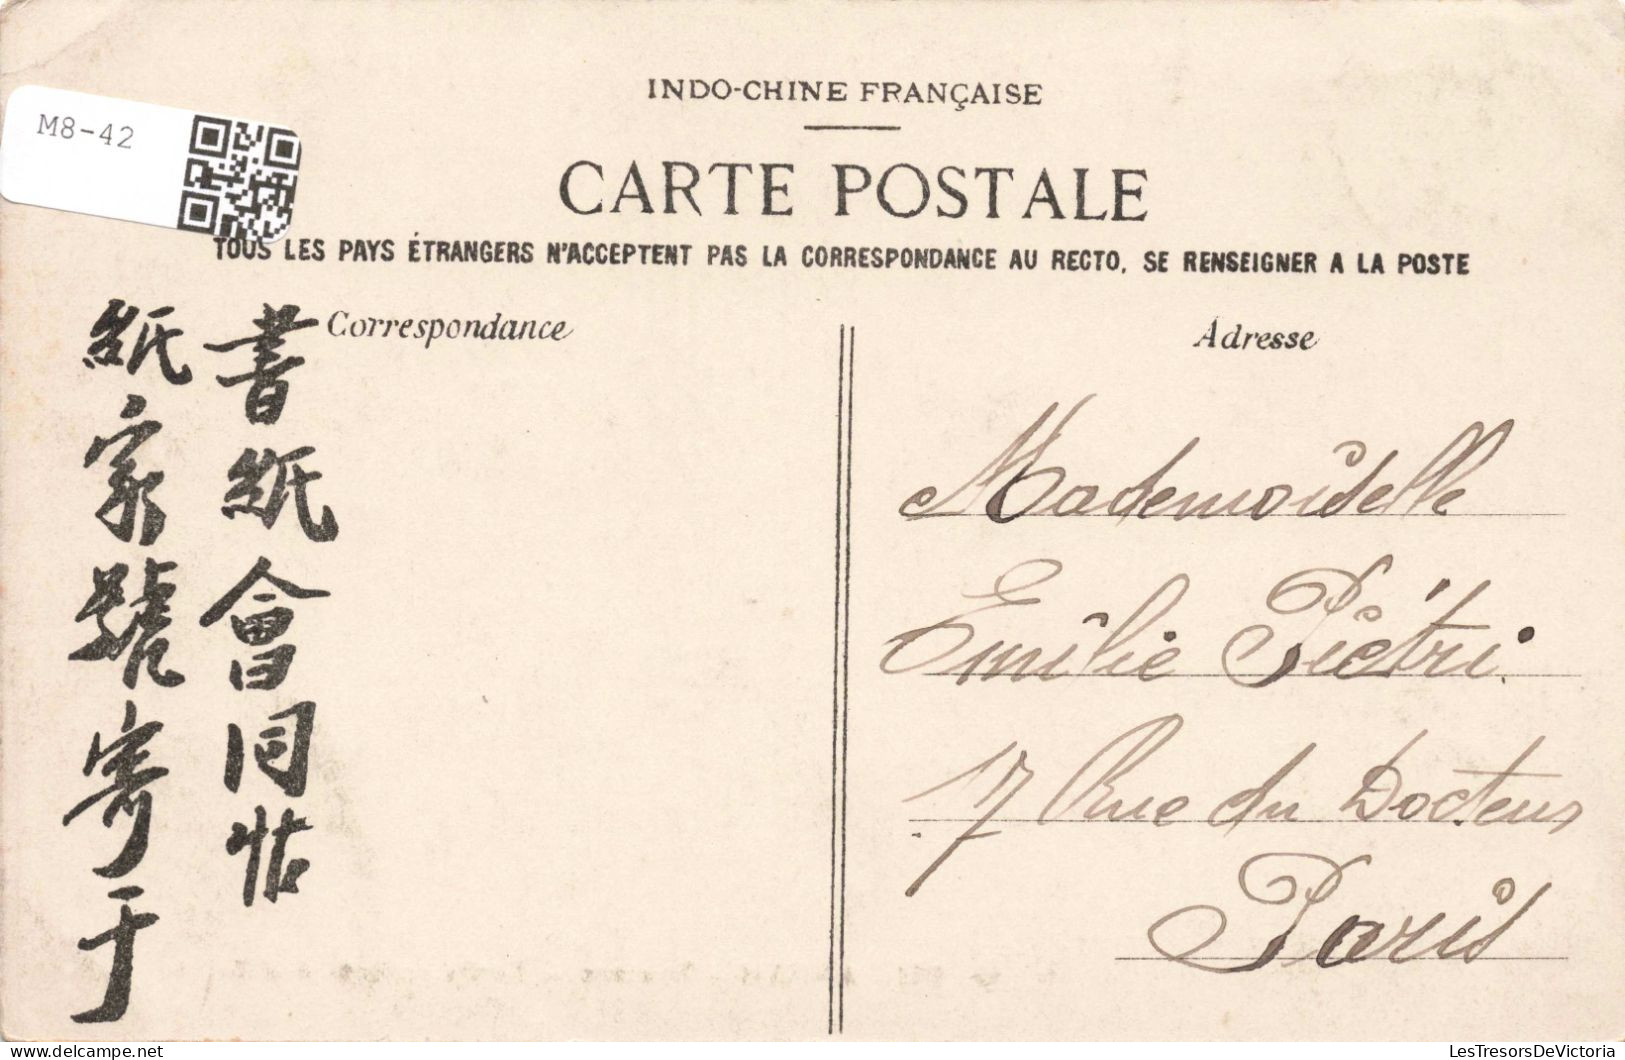 INDO-CHINE FRANÇAISE
M8-42
CARTE POSTALE
TOUS LES PAYS ÉTRANGERS N'ACCEPTENT PAS LA CORRESPONDANCE AU RECTO, SE RENSEIGNER A LA POSTE
Correspondance
Adresse
書紙會同帖
紙家號寄于
Mademoiselle
Emilie Piétri.
17 Rue du Docteur
Paris
LesTresorsDeVictoria